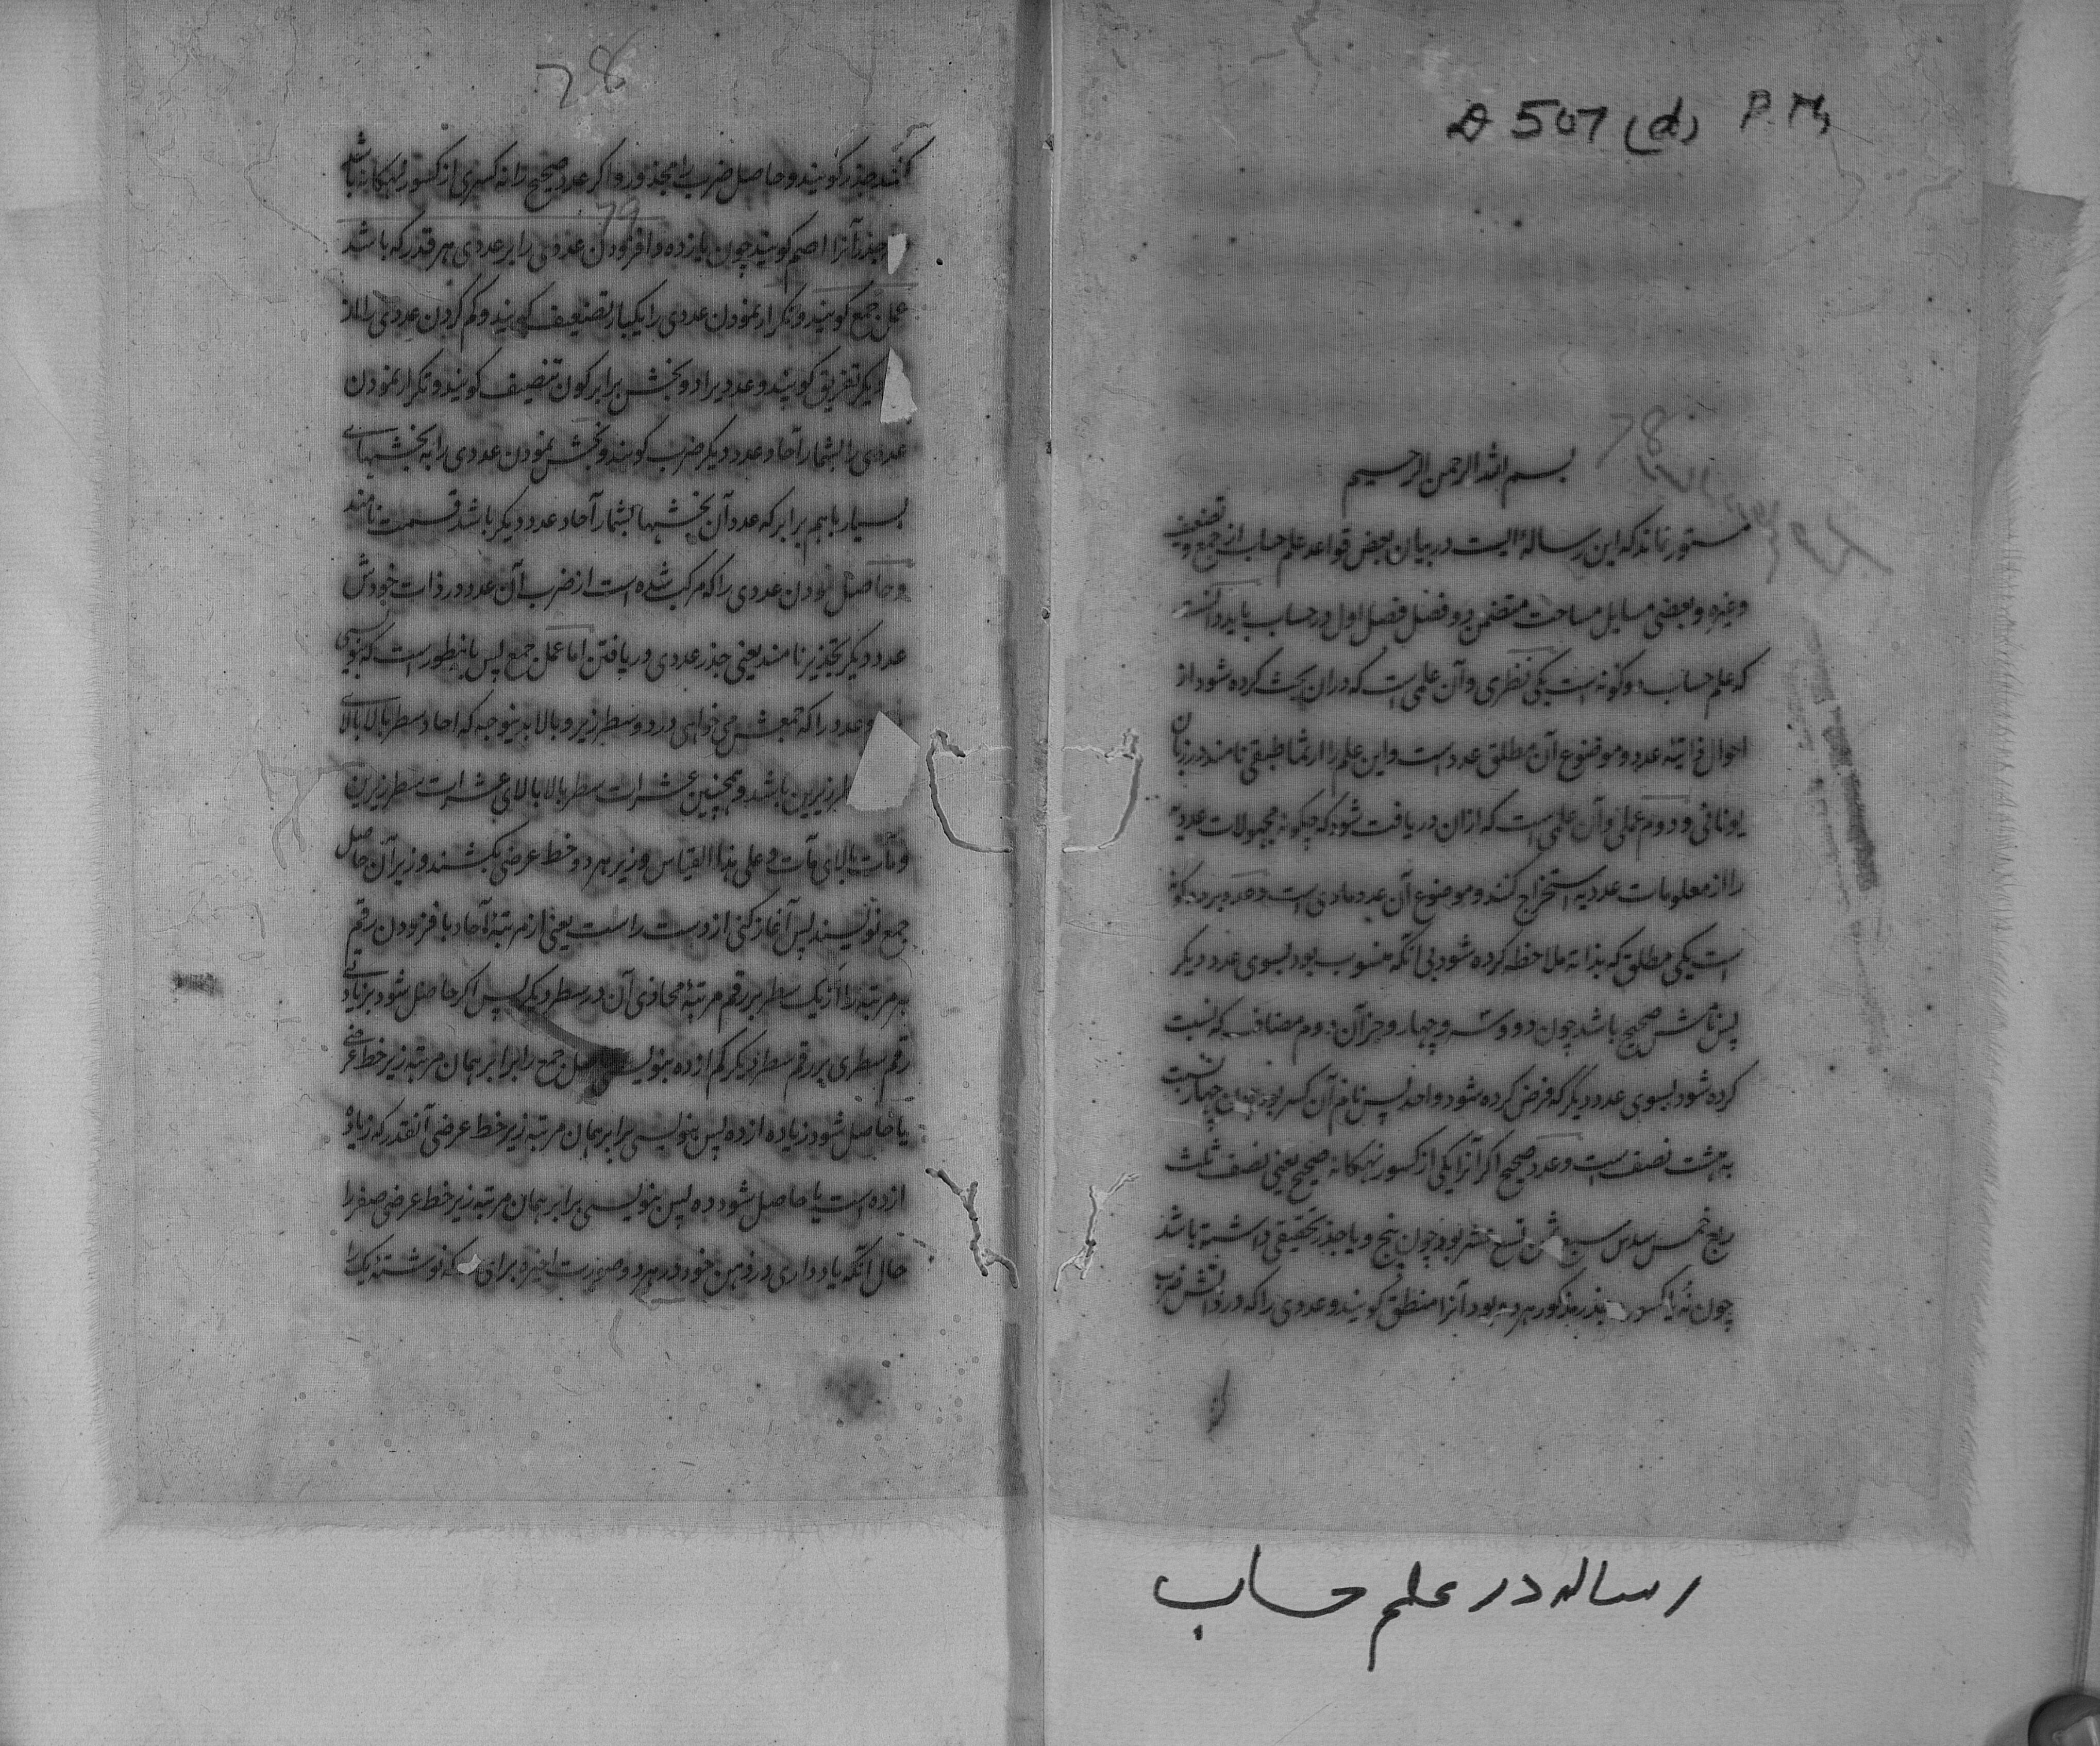 D 507 (d) P. M,
78
بسم الله الرحمن الرحیم
مستور نماند که این رساله ایست در بیان بعض قواعد علم حساب از جمع و تضعیف
وغیره و بعضی مسایل مساحت متضمن دو فصل فصل اول در حساب باید دانست
که علم حساب دوکونه است یکی نظری و آن علمی است که دران بحث کرده شود از
احوال ذاتیه عدد و موضوع آن مطلق عدد است و این علم را ارثماطیقی نامند در زبان
یونانی و دوم عملی و آن علمی است که ازان دریافت شود که چکونه مجهولات عددیه
را از معلومات عددیه استخراج کنند و موضوع آن عدد مادی است و عدد بر دو کونه
است یکی مطلق که بذاته ملاحظه کرده شود بی آنکه منسوب بود بسوی عدد دیکر
پس نامش صحیح باشد چون دو و سه و چهار و جز آن دوم مضاف که نسبت
کرده شود بسوی عدد دیکر که فرض کرده شود واحد پس نام آن کسر بود چون چهار نسبت
به هشت نصف است و عدد صحیح اکر آنرا یکی از کسور نهکانه صحیح یعنی نصف ثلث
ربع خمس سدس سبع ثمن تسع عشر بود چون پنج و یا جذر تحقیقی داشته باشد
چون نه یا کسور جذر مذکور هر دو بود آنرا منطق کویند و عددی را که در ذاتش ضرب
کنند
رساله در علم حساب
78
کنند جذر کویند و حاصل ضرب را مجذور و اکر عدد صحیح را نه کسری از کسور نهکانه باشد
79
جذر آنرا اصم کویند چون یازده و افزودن عددی را بر عددی هر قدر که باشد
عمل جمع کویند و تکرار نمودن عددی را یکبار تضعیف کویند و کم کردن عددی را از
دیکر تفریق کویند و عدد را دو بخش برابر کردن تنصیف کویند و تکرار نمودن
عددی را بشمار آحاد عدد دیکر ضرب کویند و بخش نمودن عددی را به بخشهای
بسیار باهم برابر که عدد آن بخشها بشمار آحاد عدد دیکر باشد قسمت نامند
و حاصل نمودن عددی را که مرکب شده است از ضرب آن عدد در ذات خودش
عدد دیکر تجذیر نامند یعنی جذر عددی دریافتن اما عمل جمع پس باینطور است که بنویسی
عدد را که جمعش می خواهی در دو سطر زیر و بالا بدینوجه که احاد سطر بالا بالای
سطر زیرین باشد و همچنین عشرات سطر بالا بالای عشرات سطر زیرین
و مآت بالای مآت و علی هذا القیاس و زیر هر دو خط عرضی بکشند و زیر آن حاصل
جمع نویسند پس آغاز کنی از دست راست یعنی از مرتبهٔ آحاد با فزودن رقم
هر مرتبه را از یک سطر بر رقم مرتبهٔ محاذی آن در سطر دیکر پس اکر حاصل شود بزیادتی
رقم سطری بر رقم سطر دیکر کم از ده بنویسی حاصل جمع را برابر همان مرتبه زیر خط عرضی
یا حاصل شود زیاده از ده پس بنویسی برابر همان مرتبه زیر خط عرضی آنقدر که زیاده
از ده است یا حاصل شود ده پس بنویسی برابر همان مرتبه زیر خط عرضی صفر را
حال آنکه یاد داری در ذهن خود در هر دو صورت اخیره برای که نوشتهٔ یک را